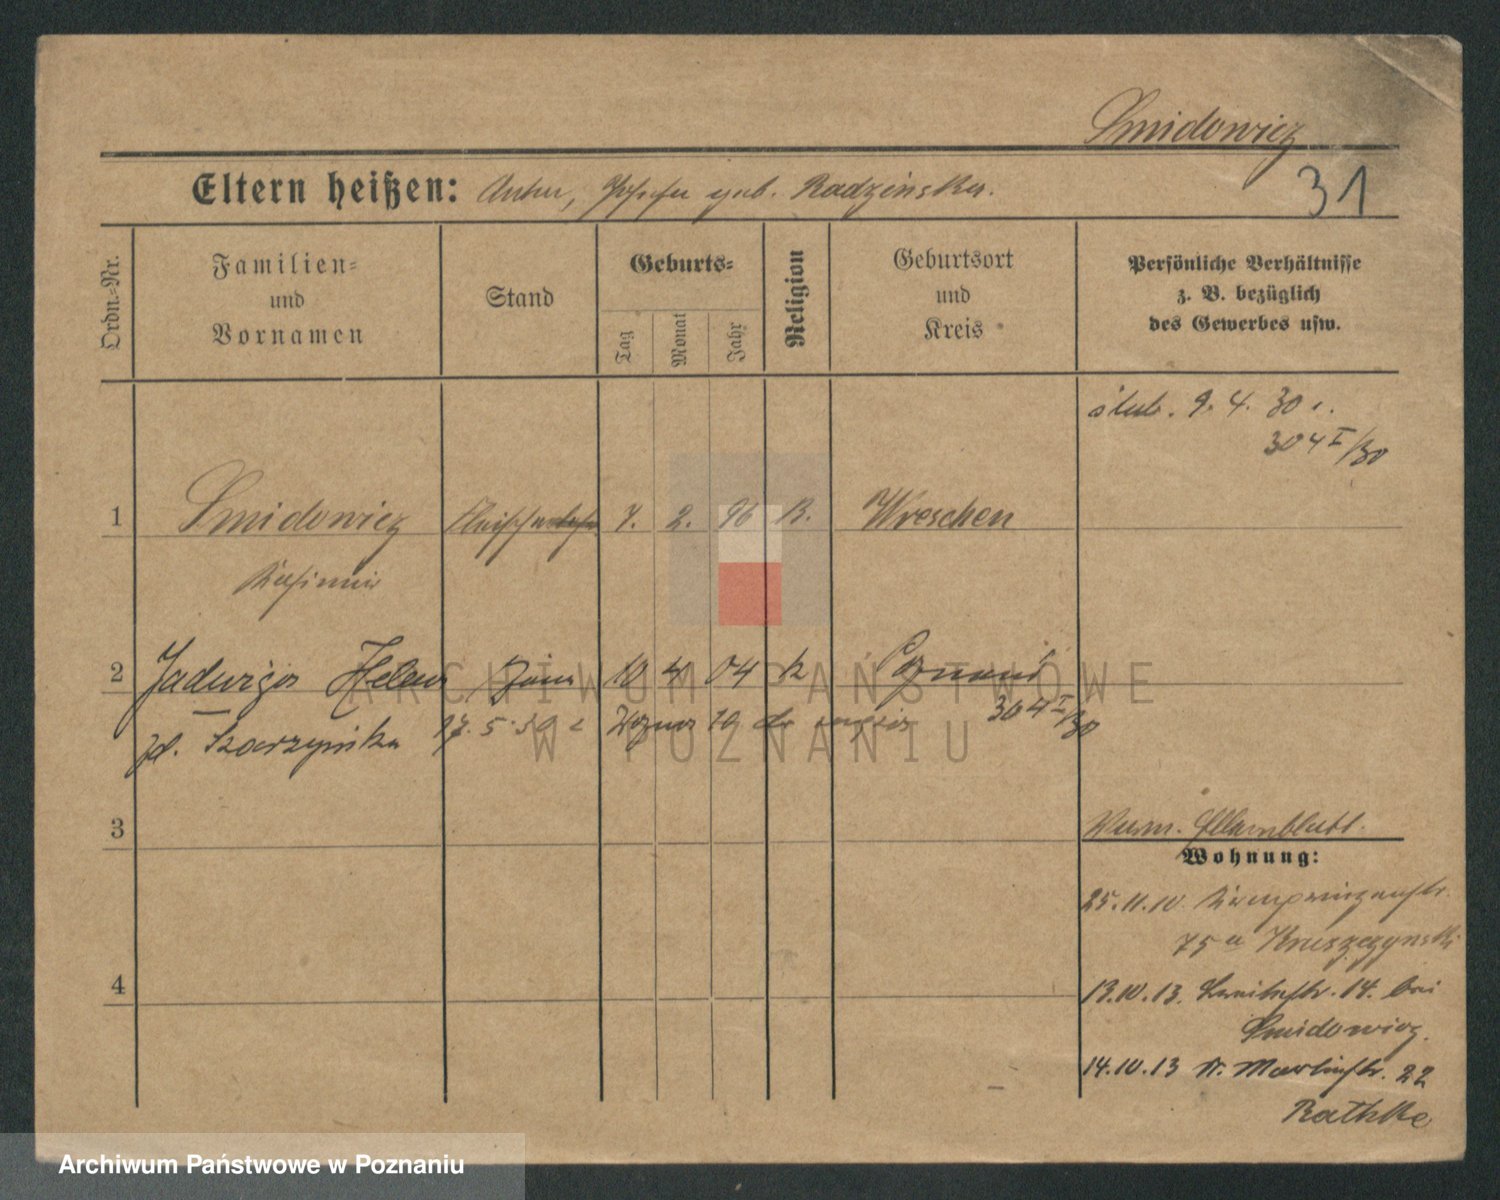 Smidowicz
31
Eltern heißen: Anton, Josefa geb. Radzinska.
Ordn.-Nr.
Familien-
und
Vornamen
Stand
Geburts-
Tag
Monat
Jahr
Religion
Geburtsort
und
Kreis
Persönliche Verhältnisse
z. B. bezüglich
des Gewerbes usw.
ślub. 9. 4. 30 r.
304 I/30
1
Smidowicz
7. 2. 96
Wreschen
Kasimir
2
Jadwiga Helena
10 4 04 k
Poznań
304 I/30
zd. Skarzyńska
17. 5. 30
3
Wohnung:
25.11.10. Kronprinzenstr.
75a Kruszczynski
4
13.10.13. 14. bei
Smidowicz.
14.10.13 St. Martinstr. 22
Rathke
ARCHIWUM PAŃSTWOWE
W POZNANIU
Archiwum Państwowe w Poznaniu